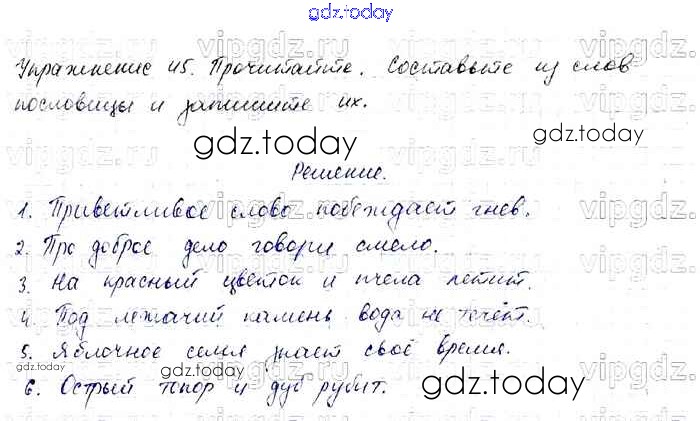 gdz.today
Упражнение 45. Прочитайте. Составьте из слов
пословицы и запишите их.
gdz.today
gdz.today
Решение.
1. Приветливое слово побеждает гнев.
2. Про доброе дело говори смело.
3. На красный цветок и пчела летит.
4. Под лежачий камень вода не течёт.
5. Яблочное семя знает своё время.
6. Острый топор и дуб рубит.
gdz.today
gdz.today